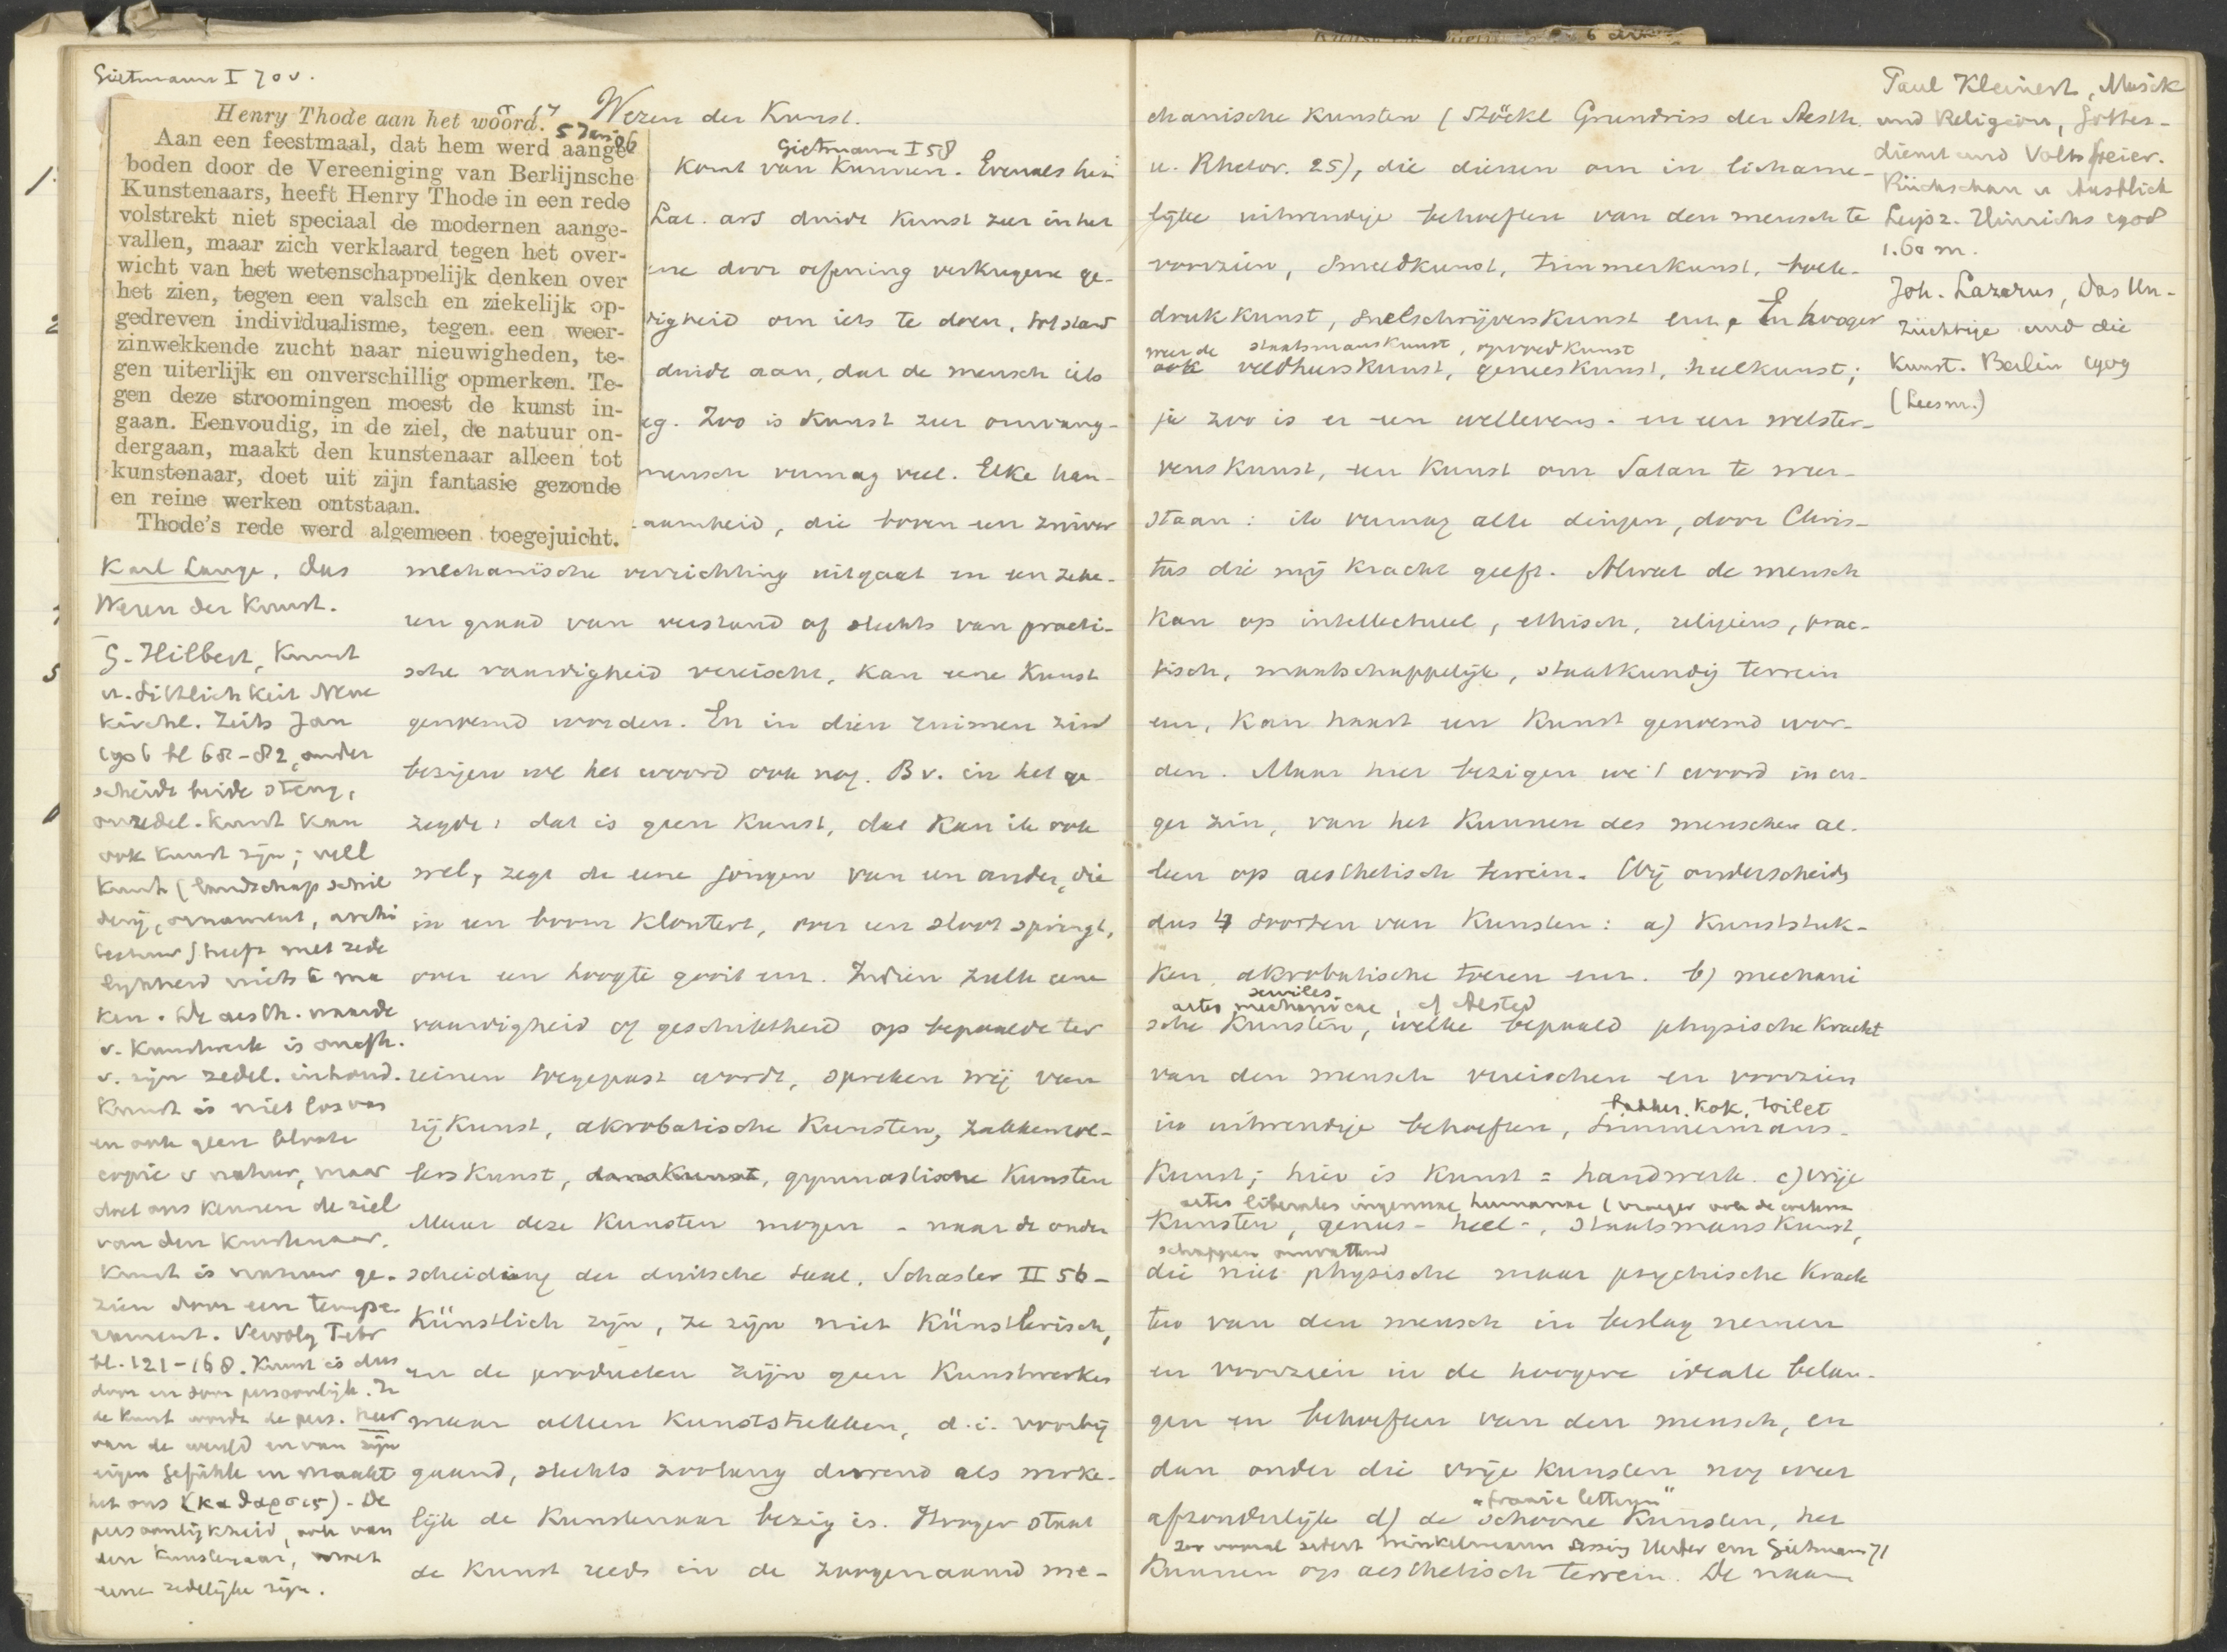 Gietmann I 70 v.
Henry Thode aan het woord.
5 Jan 06
Aan een feestmaal, dat hem werd aange-
boden door de Vereeniging van Berlijnsche
Kunstenaars, heeft Henry Thode in een rede
volstrekt niet speciaal de modernen aange-
vallen, maar zich verklaard tegen het over-
wicht van het wetenschappelijk denken over
het zien, tegen een valsch en ziekelijk op-
gedreven individualisme, tegen een weer-
zinwekkende zucht naar nieuwigheden, te-
gen uiterlijk en onverschillig opmerken. Te-
gen deze stroomingen moest de kunst in-
gaan. Eenvoudig, in de ziel, de natuur on-
dergaan, maakt den kunstenaar alleen tot
kunstenaar, doet uit zijn fantasie gezonde
en reine werken ontstaan.
Thode's rede werd algemeen toegejuicht.
Karl Lange, das
Wesen der Kunst.
G. Hilbert, Kunst
u. Sittlichkeit Neue
kirchl. Zeits Jan
1906 bl 68-82, onder
scheidt beide streng,
onzedel. kunst kan
ook kunst zijn; veel
kunst (landschap schil
derij, ornament, archi
tectuur) heeft met zede
lijkheid niets te ma
ken. De aesth. waarde
v. kunstwerk is onafh.
v. zijn zedel. inhoud.
Kunst is niet los van
en ook geen bloote
copie v natuur, maar
doet ons kennen de ziel
van den kunstenaar.
Kunst is natuur ge-
zien door een tempe-
rament. Vervolg Febr
bl. 121-168. Kunst is dus
door en door persoonlijk. In
de kunst wordt de pers. heer
van de wereld en van zijn
eigen Gefühle en maakt
het ons (καθαρσις). De
persoonlijkheid, ook van
den kunstenaar, moet
eene zedelijke zijn.
§ 17 Wezen der Kunst.
Gietmann I 58
1. Komt van Kunnen. Evenals het
Lat. ars duidt kunst zeer in het
ene door oefening verkregene ge-
digheid om iets te doen, tot stand
duidt aan, dat de mensch iets
Zoo is kunst zeer omvang-
mensch vermag veel. Elke han-
aamheid, die boven een zuiver
mechanische verrichting uitgaat en een zeke-
ren graad van verstand of slechts van practi-
sche vaardigheid vereischt, kan eene kunst
genoemd worden. En in dien ruimen zin
bezigen we het woord ook nog. Bv. in het ge-
zegde: dat is geen kunst, dat kan ik ook
wel, zegt de eene jongen van een ander, die
in een boom klautert, over een sloot springt,
over een hoogte gooit enz. Indien zulk eene
vaardigheid of geschiktheid op bepaalde ter
reinen toegepast wordt, spreken wij van
rijkunst, akrobatische kunsten, zakkenrol-
lerskunst, danskunst, gymnastische kunsten
Maar deze kunsten mogen - naar de onder
scheiding der duitsche taal, Schasler II 56-
Künstlich zijn, ze zijn niet Künstlerisch,
en de producten zijn geen kunstwerken
maar alleen kunststukken, d.i. voorbij
gaand, slechts zoolang durend als werke-
lijk de kunstenaar bezig is. Hooger staat
de kunst reeds in de zoogenaamd me-
chanische kunsten (Stöckl Grundriss der Aesth.
u. Rhetor. 25), die dienen om in lichame-
lijke uitwendige behoeften van den mensch te
voorzien, smeedkunst, timmerkunst, boek-
drukkunst, snelschrijverskunst enz. En hooger
weer de staatsmanskunst, opvoedkunst
ook veldheerskunst, geneeskunst, heelkunst;
ja zoo is er een wellevens- en een welster-
venskunst, een kunst om Satan te weer-
staan: ik vermag alle dingen, door Chris-
tus die mij kracht geeft. Alwat de mensch
kan op intellectueel, ethisch, religieus, prac-
tisch, maatschappelijk, staatkundig terrein
enz, kan haast een kunst genoemd wor-
den. Maar hier bezigen we 't woord in en-
ger zin, van het kunnen des menschen al-
leen op aesthetisch terrein. Wij onderscheiden
dus 4 soorten van kunsten: a) kunststuk-
ken, akrobatische toeren enz. b) mechani
artes mechanicae, serviles
sche kunsten, welke bepaald physische kracht
van den mensch vereischen en voorzien
bakker, kok, toilet
in uitwendige behoeften, timmermans-
kunst; hier is kunst = handwerk. c) vrije
artes liberales ingenuae humanae (vroeger ook de weten
kunsten, genees- heel-, staatsmanskunst,
schappen omvattend
die niet physische maar psychische krach
ten van den mensch in beslag nemen
en voorzien in de hoogere ideale belan-
gen en behoeften van den mensch, en
dan onder die vrije kunsten nog weer
"fraaie letteren"
afzonderlijk d) de schoone kunsten, het
zoo vooral sedert Winkelmann Lessing Herder enz Gietmann 71
Kunnen op aesthetisch terrein. De naam
Paul Kleinert, Musik
und Religion, Gottes-
dienst und Volksfeier.
Rückschau u Ausblick
Leipz. Hinrichs 1908
1.60 m.
Joh. Lazarus, Das Un-
züchtige und die
Kunst. Berlin 1909
(Leesm.)